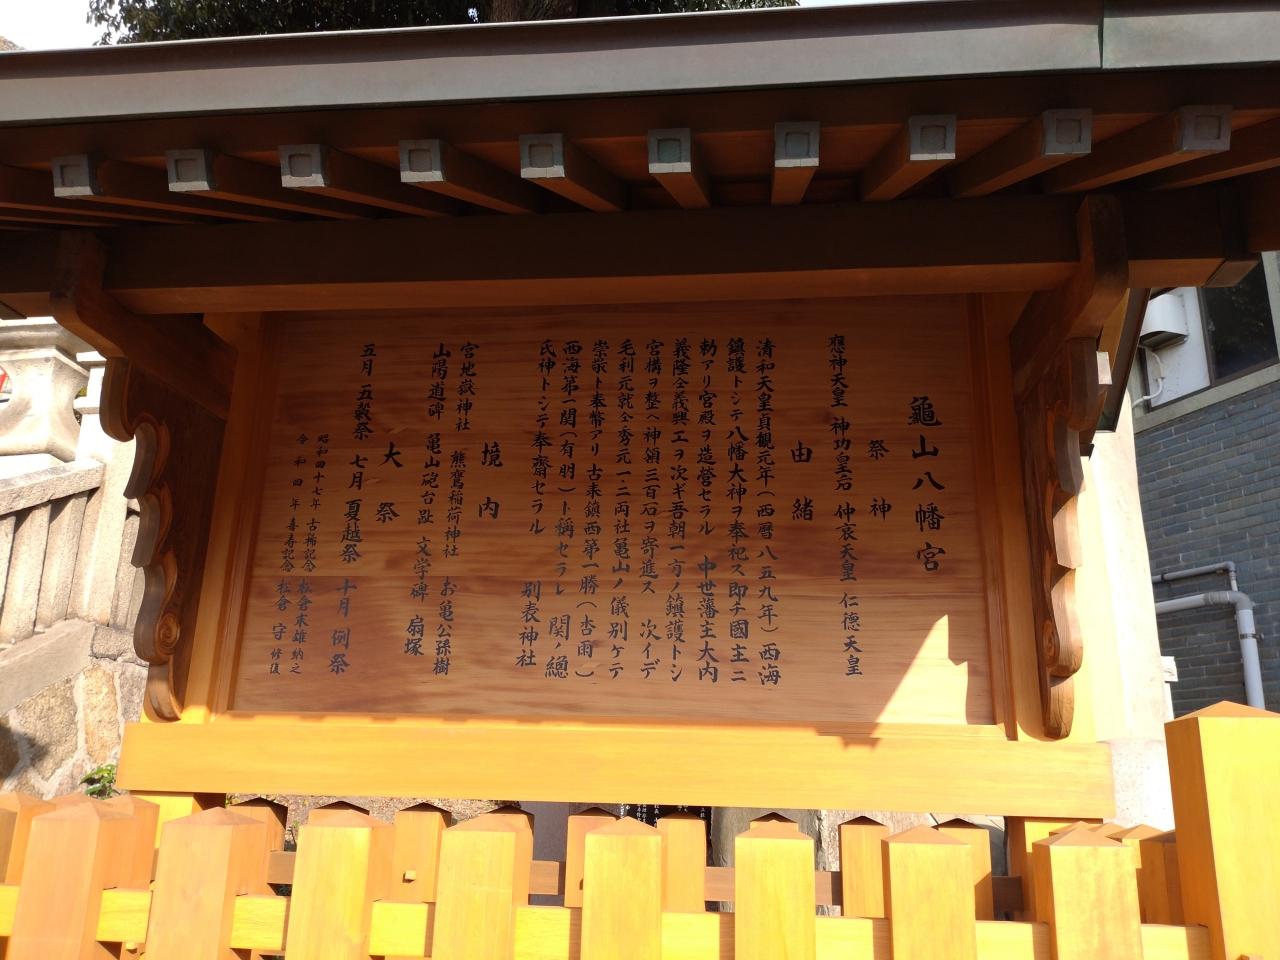 龜山八幡宮
祭神
應神天皇 神功皇后 仲哀天皇 仁德天皇
由緒
清和天皇貞観元年(西暦八五九年)西海
鎮護トシテ八幡大神ヲ奉祀ス即チ國主ニ
勅アリ宮殿ヲ造營セラル 中世藩主大内
義隆仝義興工ヲ次ギ吾朝一方ノ鎮護トシ
宮構ヲ整ヘ神領三百石ヲ寄進ス 次イデ
毛利元就仝秀元一・二両社亀山ノ儀別ケテ
崇敬ト奉幣アリ古来鎮西第一勝(杏雨)
西海第一関(有明)ト稱セラレ 関ノ總
氏神トシテ奉齋セラル 別表神社
境内
宮地嶽神社 熊鷹稲荷神社 お亀公孫樹
山陽道碑 亀山砲台趾 文字碑 扇塚
大祭
五月 五穀祭 七月 夏越祭 十月 例祭
昭和四十七年 古稀記念 松倉末雄納之
令和四年 喜寿記念 松倉 守 修復